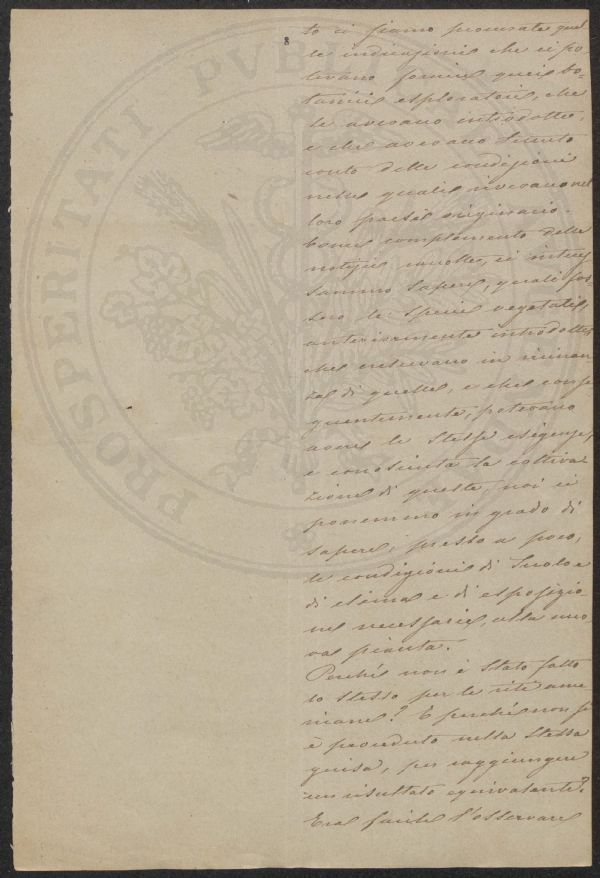 8
to ci siamo procurate quel
le indicazioni che ci po
tevano fornire quei bo-
tanici esploratori, che
le avevano introdotte,
e che avevano tenuto
conto delle condizioni
nelle quali vivevano nel
loro paese originario.
Come complemento delle
notizie raccolte, ci interes
sammo sapere, quali fos-
sero le specie vegetali,
anteriormente introdotte,
che crescevano in vicinan
za di quelle, e che conse
guentemente, potevano
avere le stesse esigenze,
e conosciuta la coltiva-
zione di queste, noi ci
ponemmo in grado di
sapere, presso a poco,
le condizioni di suolo e
di clima e di esposizio-
ne necessarie, alla nuo-
va pianta.
Perché non è stato fatto
lo stesso per le viti ame-
ricane? E perché non si
è proceduto nella stessa
guisa, per raggiungere
un risultato equivalente?
Era facile l'osservare
PROSPERITATI PVBLI